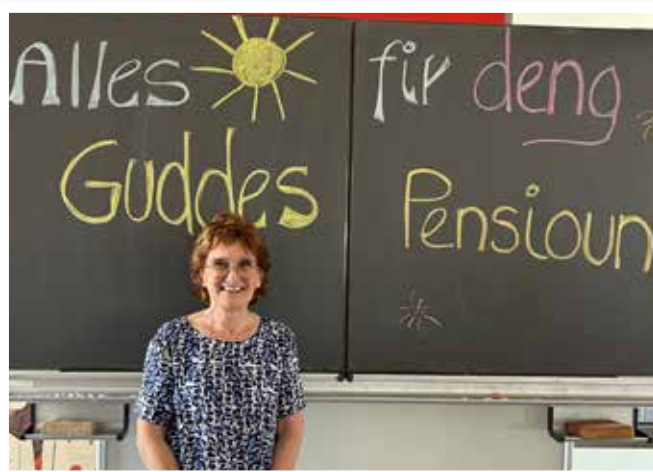 Alles
Guddes
fir deng
Pensioun